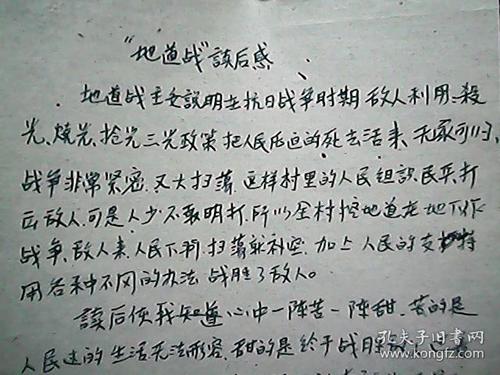 "地道战"读后感
地道战主要说明在抗日战争时期敌人利用、殺
光、燒光、抢光三光政策把人民压迫的死去活来、无家可归、
战争非常紧密、又大扫荡、这样村里的人民组识民兵、打
击敌人、可是人少不敢明打、所以全村挖地道在地下作
战争、敌人来、人民下洞、扫荡就补空、加上人民的支持
用各种不同的办法战胜了敌人。
讀后使我知道心中一陈苦一陈甜、苦的是
人民过的生活无法形容、甜的是终于战胜敌人
孔夫子旧书网
www.kongfz.com